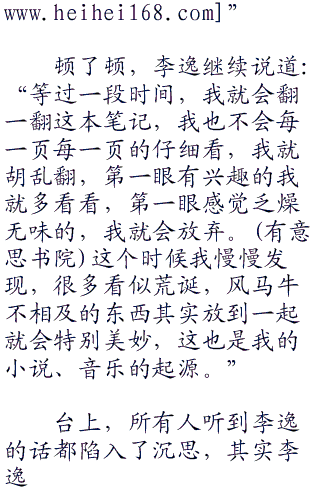 www.heihei168.com]”
顿了顿，李逸继续说道：
“等过一段时间，我就会翻
一翻这本笔记，我也不会每
一页每一页的仔细看，我就
胡乱翻，第一眼有兴趣的我
就多看看，第一眼感觉乏燥
无味的，我就会放弃。(有意
思书院)这个时候我慢慢发
现，很多看似荒诞，风马牛
不相及的东西其实放到一起
就会特别美妙，这也是我的
小说、音乐的起源。”
台上，所有人听到李逸
的话都陷入了沉思，其实李
逸